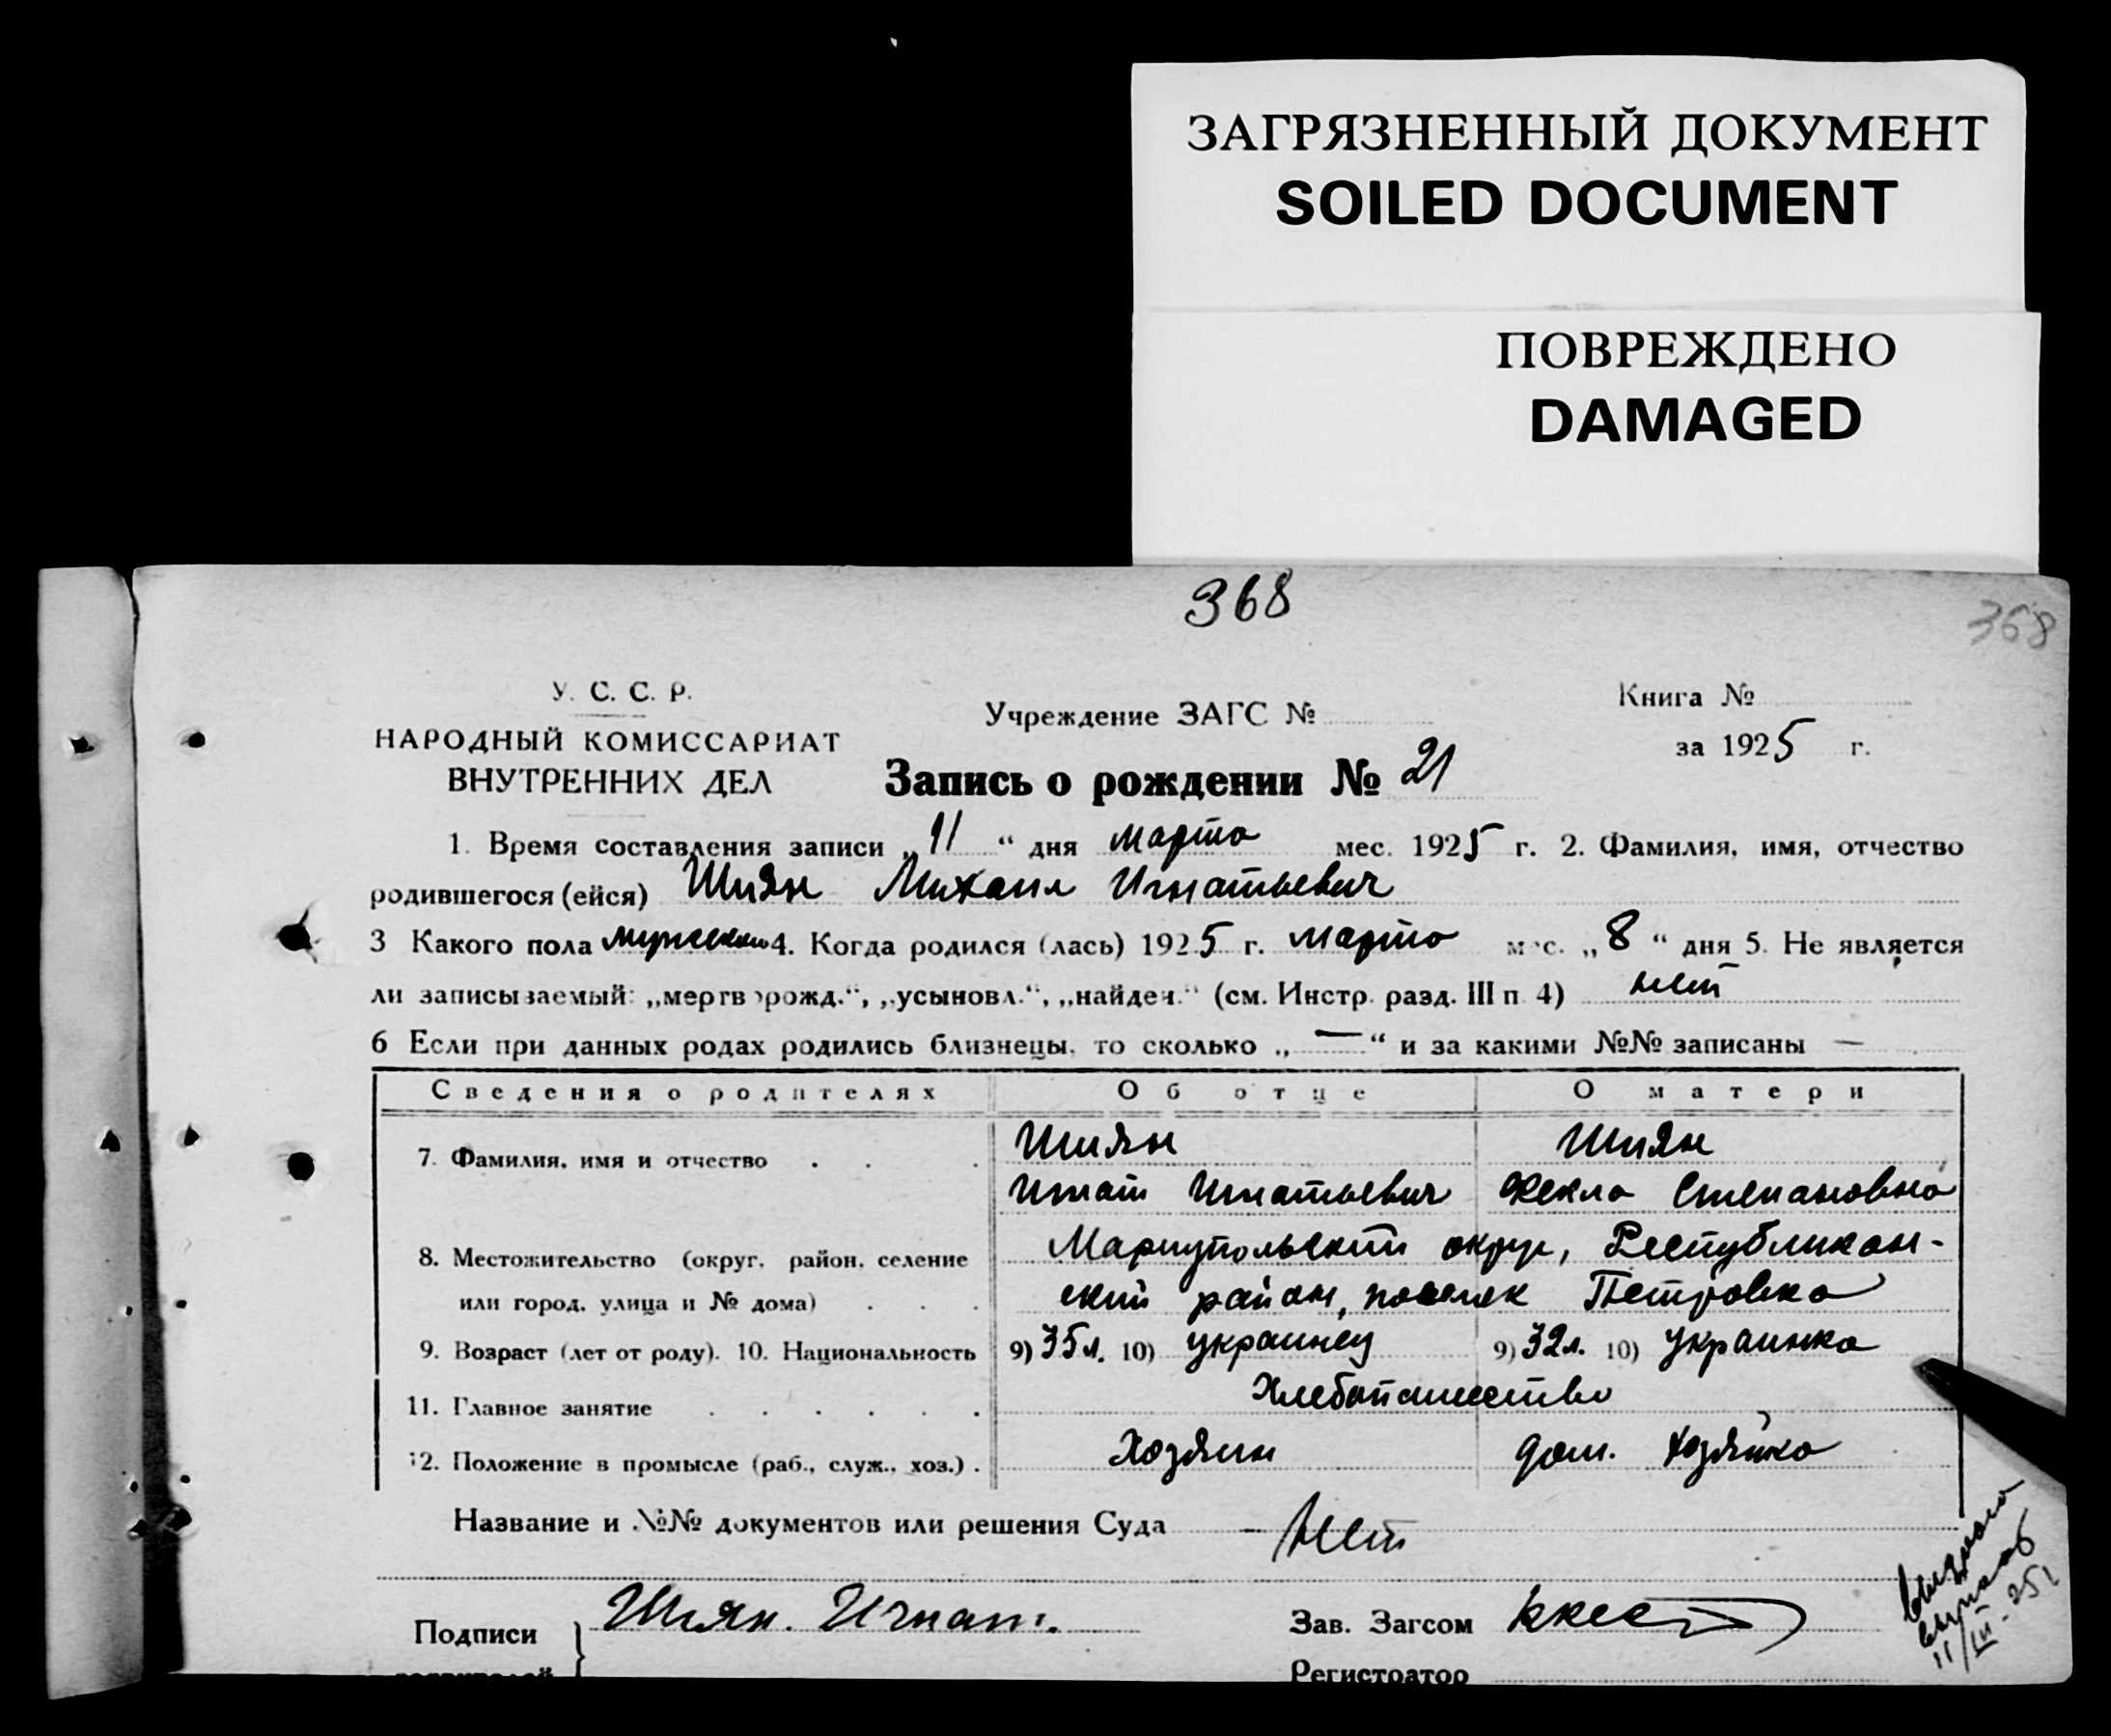 ЗАГРЯЗНЕННЫЙ ДОКУМЕНТ
SOILED DOCUMENT
ПОВРЕЖДЕНО
DAMAGED
368
368
У. С. С. Р.
НАРОДНЫЙ КОМИССАРИАТ
ВНУТРЕННИХ ДЕЛ
Учреждение ЗАГС №
Книга №
за 1925 г.
Запись о рождении № 21
1. Время составления записи „11“ дня марта мес. 1925 г. 2. Фамилия, имя, отчество
родившегося (ейся) Шиян Михаил Игнатьевич
3 Какого пола мужеского 4. Когда родился (лась) 1925 г. марта мес. „8“ дня 5. Не является
ли записываемый: „мертворожд.“, „усыновл.“, „найден.“ (см. Инстр. разд. III п 4) нет
6 Если при данных родах родились близнецы, то сколько „—“ и за какими №№ записаны —
Сведения о родителях Об отце О матери
7. Фамилия, имя и отчество . . . Шиян Шиян
Игнат Игнатьевич Фекла Степановна
8. Местожительство (округ, район, селение Мариупольский округ, Республикан-
или город, улица и № дома) . . . ский район, поселок Петровка
9. Возраст (лет от роду). 10. Национальность 9) 35 л. 10) украинец 9) 32 л. 10) украинка
11. Главное занятие . . . . . . Хлебопашество
12. Положение в промысле (раб., служ., хоз.) . Хозяин дом. хозяйка
Название и №№ документов или решения Суда — Нет
Подписи } Шиян. Игнат. Зав. Загсом
родителей Регистратор
выдана
11/III-25